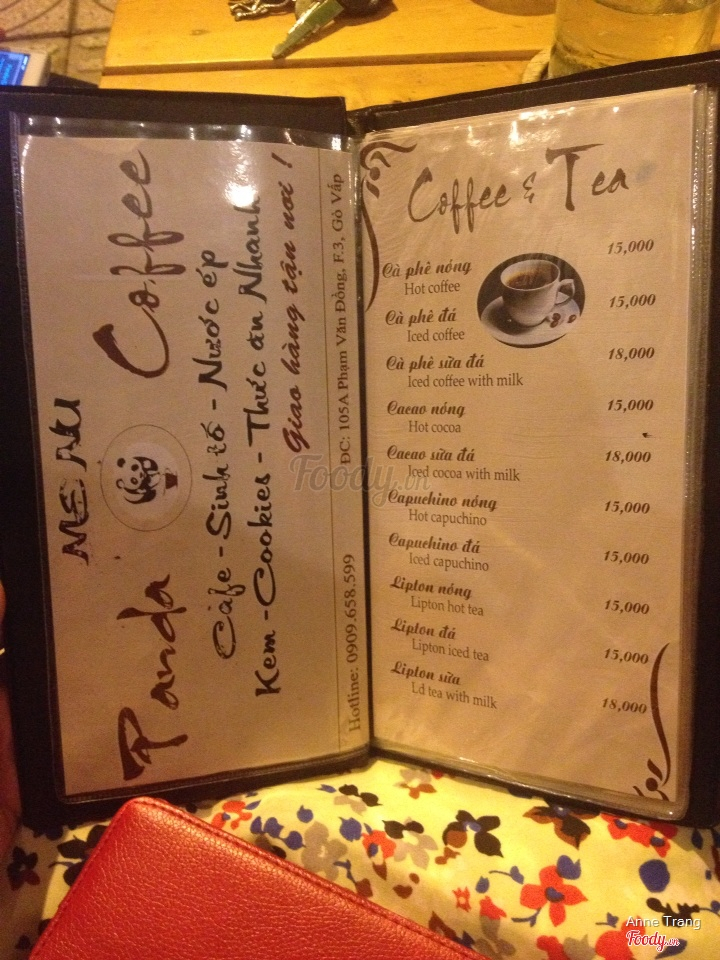 MENU
Panda Coffee
Càfe - Sinh tố - Nước ép
Kem - Cookies - Thức ăn Nhanh
Giao hàng tận nơi !
Hotline: 0909.658.599 ĐC: 105A Phạm Văn Đồng, F.3, Gò Vấp
Coffee & Tea
Cà phê nóng 15,000
Hot coffee
Cà phê đá 15,000
Iced coffee
Cà phê sữa đá 18,000
Iced coffee with milk
Cacao nóng 15,000
Hot cocoa
Cacao sữa đá 18,000
Iced cocoa with milk
Capuchino nóng 15,000
Hot capuchino
Capuchino đá 15,000
Iced capuchino
Lipton nóng 15,000
Lipton hot tea
Lipton đá 15,000
Lipton iced tea
Lipton sữa 18,000
Ld tea with milk
Foody.vn
Anne Trang
Foody.vn